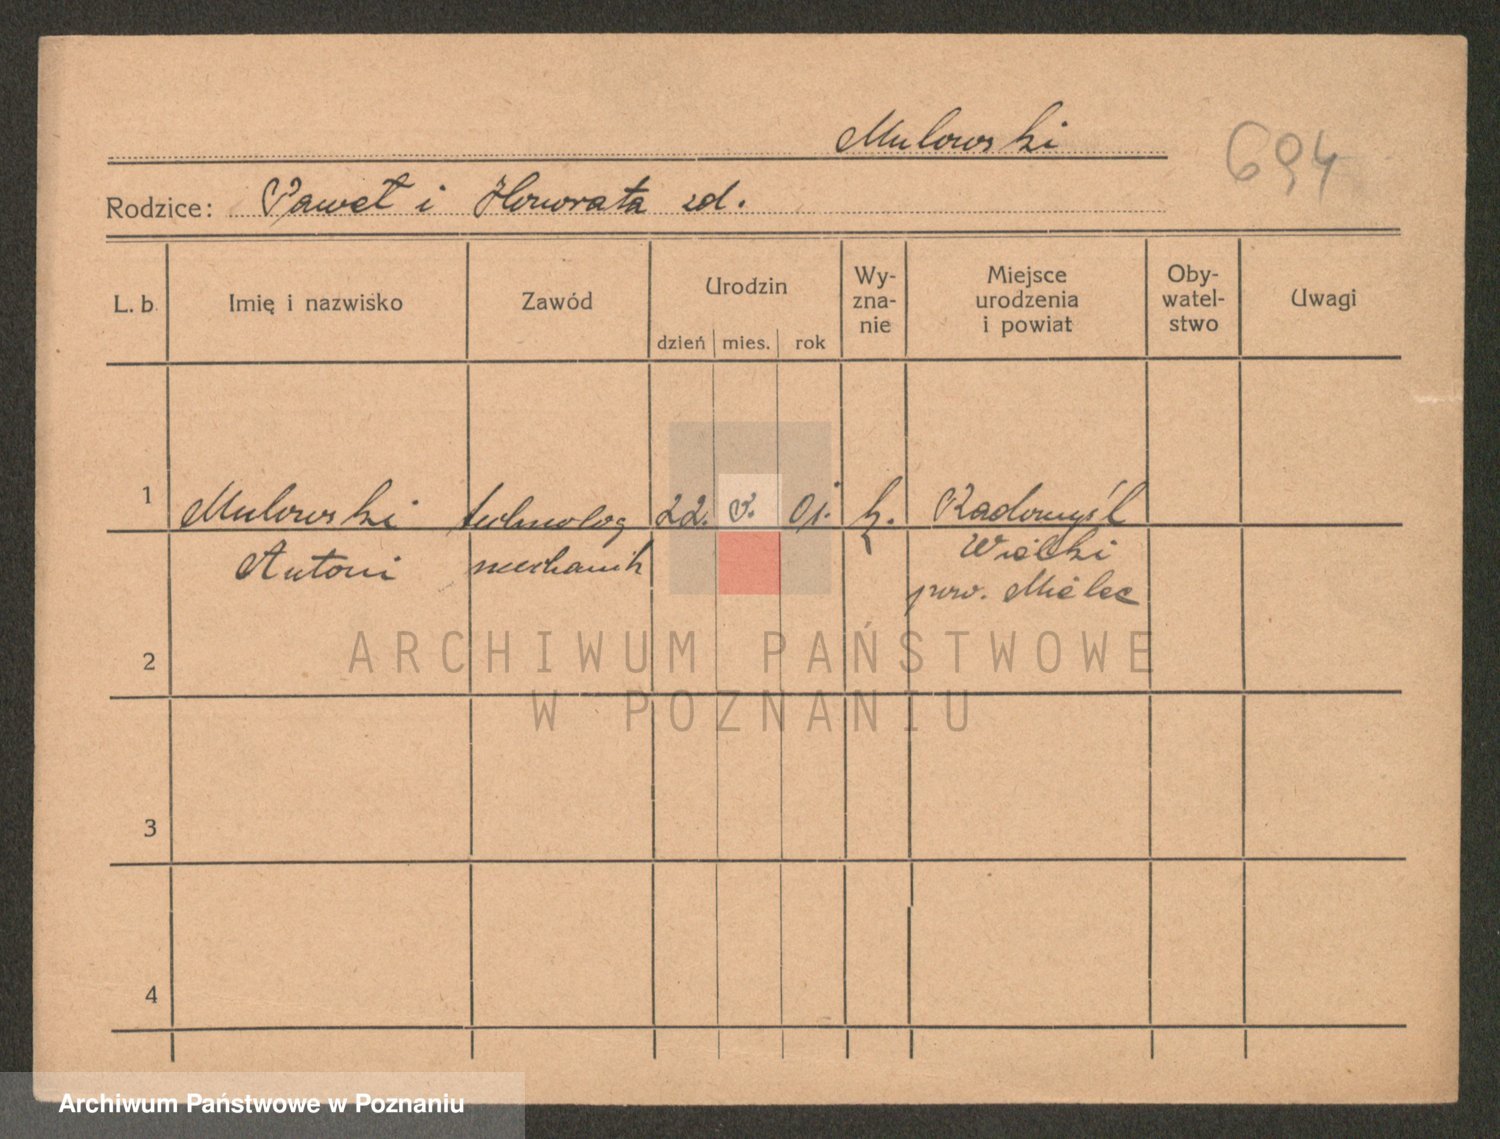 Mulowski
694
Rodzice: Paweł i Honorata zd.
L. b. Imię i nazwisko Zawód Urodzin Wy- Miejsce Oby- Uwagi
zna- urodzenia watel-
nie i powiat stwo
dzień mies. rok
1 Mulowski technolog 22. V. 01. k. Radomyśl
Antoni mechanik Wielki
pow. Mielec
2
ARCHIWUM PAŃSTWOWE
W POZNANIU
3
4
Archiwum Państwowe w Poznaniu